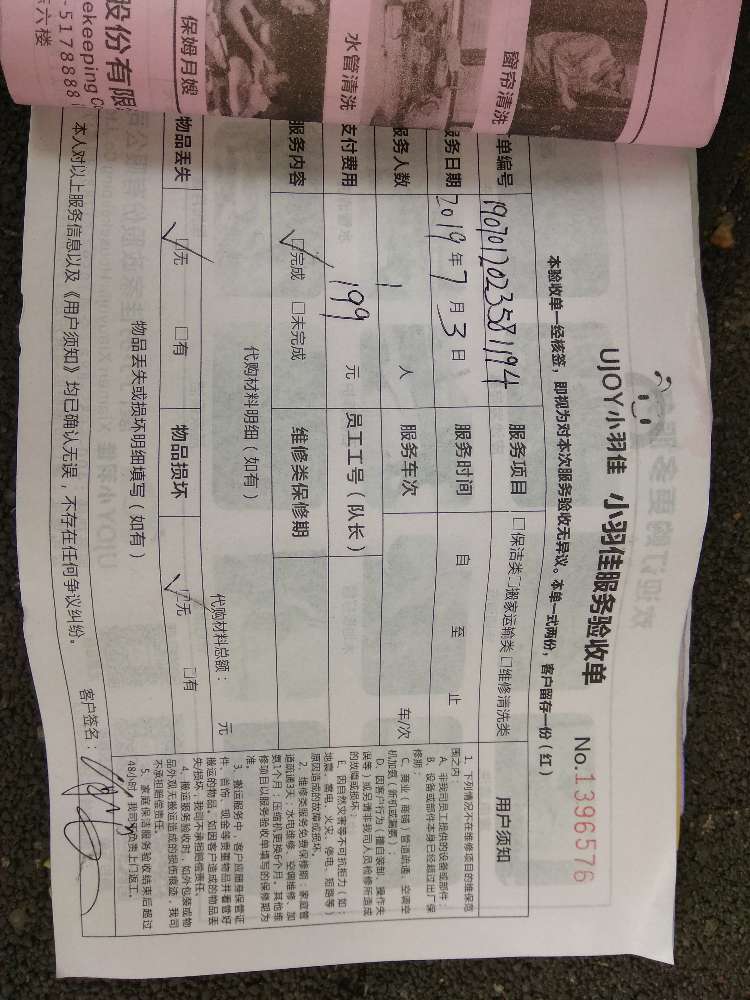 股份有限
ekeeping C
-5178888
六楼
保姆月嫂
水管清洗
窗帘清洗
UJOY小羽佳 小羽佳服务验收单
No.1396576
本验收单一经核签，即视为对本次服务验收无异议。本单一式两份，客户留存一份（红）
单编号 1907012023581194 服务项目 □保洁类 □搬家运输类 □维修清洗类
务日期 2019年7月3日 服务时间 自 至 止
服务人数 1 人 服务车次 车/次
支付费用 199 元 员工工号（队长）
服务内容 □完成 □未完成 维修类保修期
代购材料明细（如有）
代购材料总额： 元
物品丢失 □无 □有 物品损坏 □无 □有
物品丢失或损坏明细填写（如有）
本人对以上服务信息以及《用户须知》均已确认无误，不存在任何争议纠纷。
客户签名：
用户须知
1、下列情况不在维修项目的维保范
围之内：
A、非我司员工提供的设备或部件；
B、设备或部件本身已经超过出厂保
修期；
C、商业（商铺）管道疏通、空调空
机加氨（新机或漏氨）；
D、因客户行为（擅自装卸、操作失
误等）或另请非我司人员检修所造成
的故障或损坏；
E、因自然灾害等不可抗拒力（如：
地震、雷电、火灾、停电、短路等）
原因造成的故障或损坏。
2、维修类服务免费保修期：家庭管
道疏通3天；水电维修、空调维修、加
氨1个月；压缩机更换6个月。其他维
修项目以服务验收单填写的保修期为
准。
3、搬运服务中，客户应随身保管证
件、首饰、现金等贵重物品并看管好
搬运的物品，如因客户造成的物品丢
失/损坏，我司不承担赔偿责任。
4、搬运服务验收时，如外包装或物
品外观无搬运造成的损伤痕迹，我司
不承担赔偿责任。
5、家庭保洁服务验收结束后超过
48小时，我司不负责上门返工。